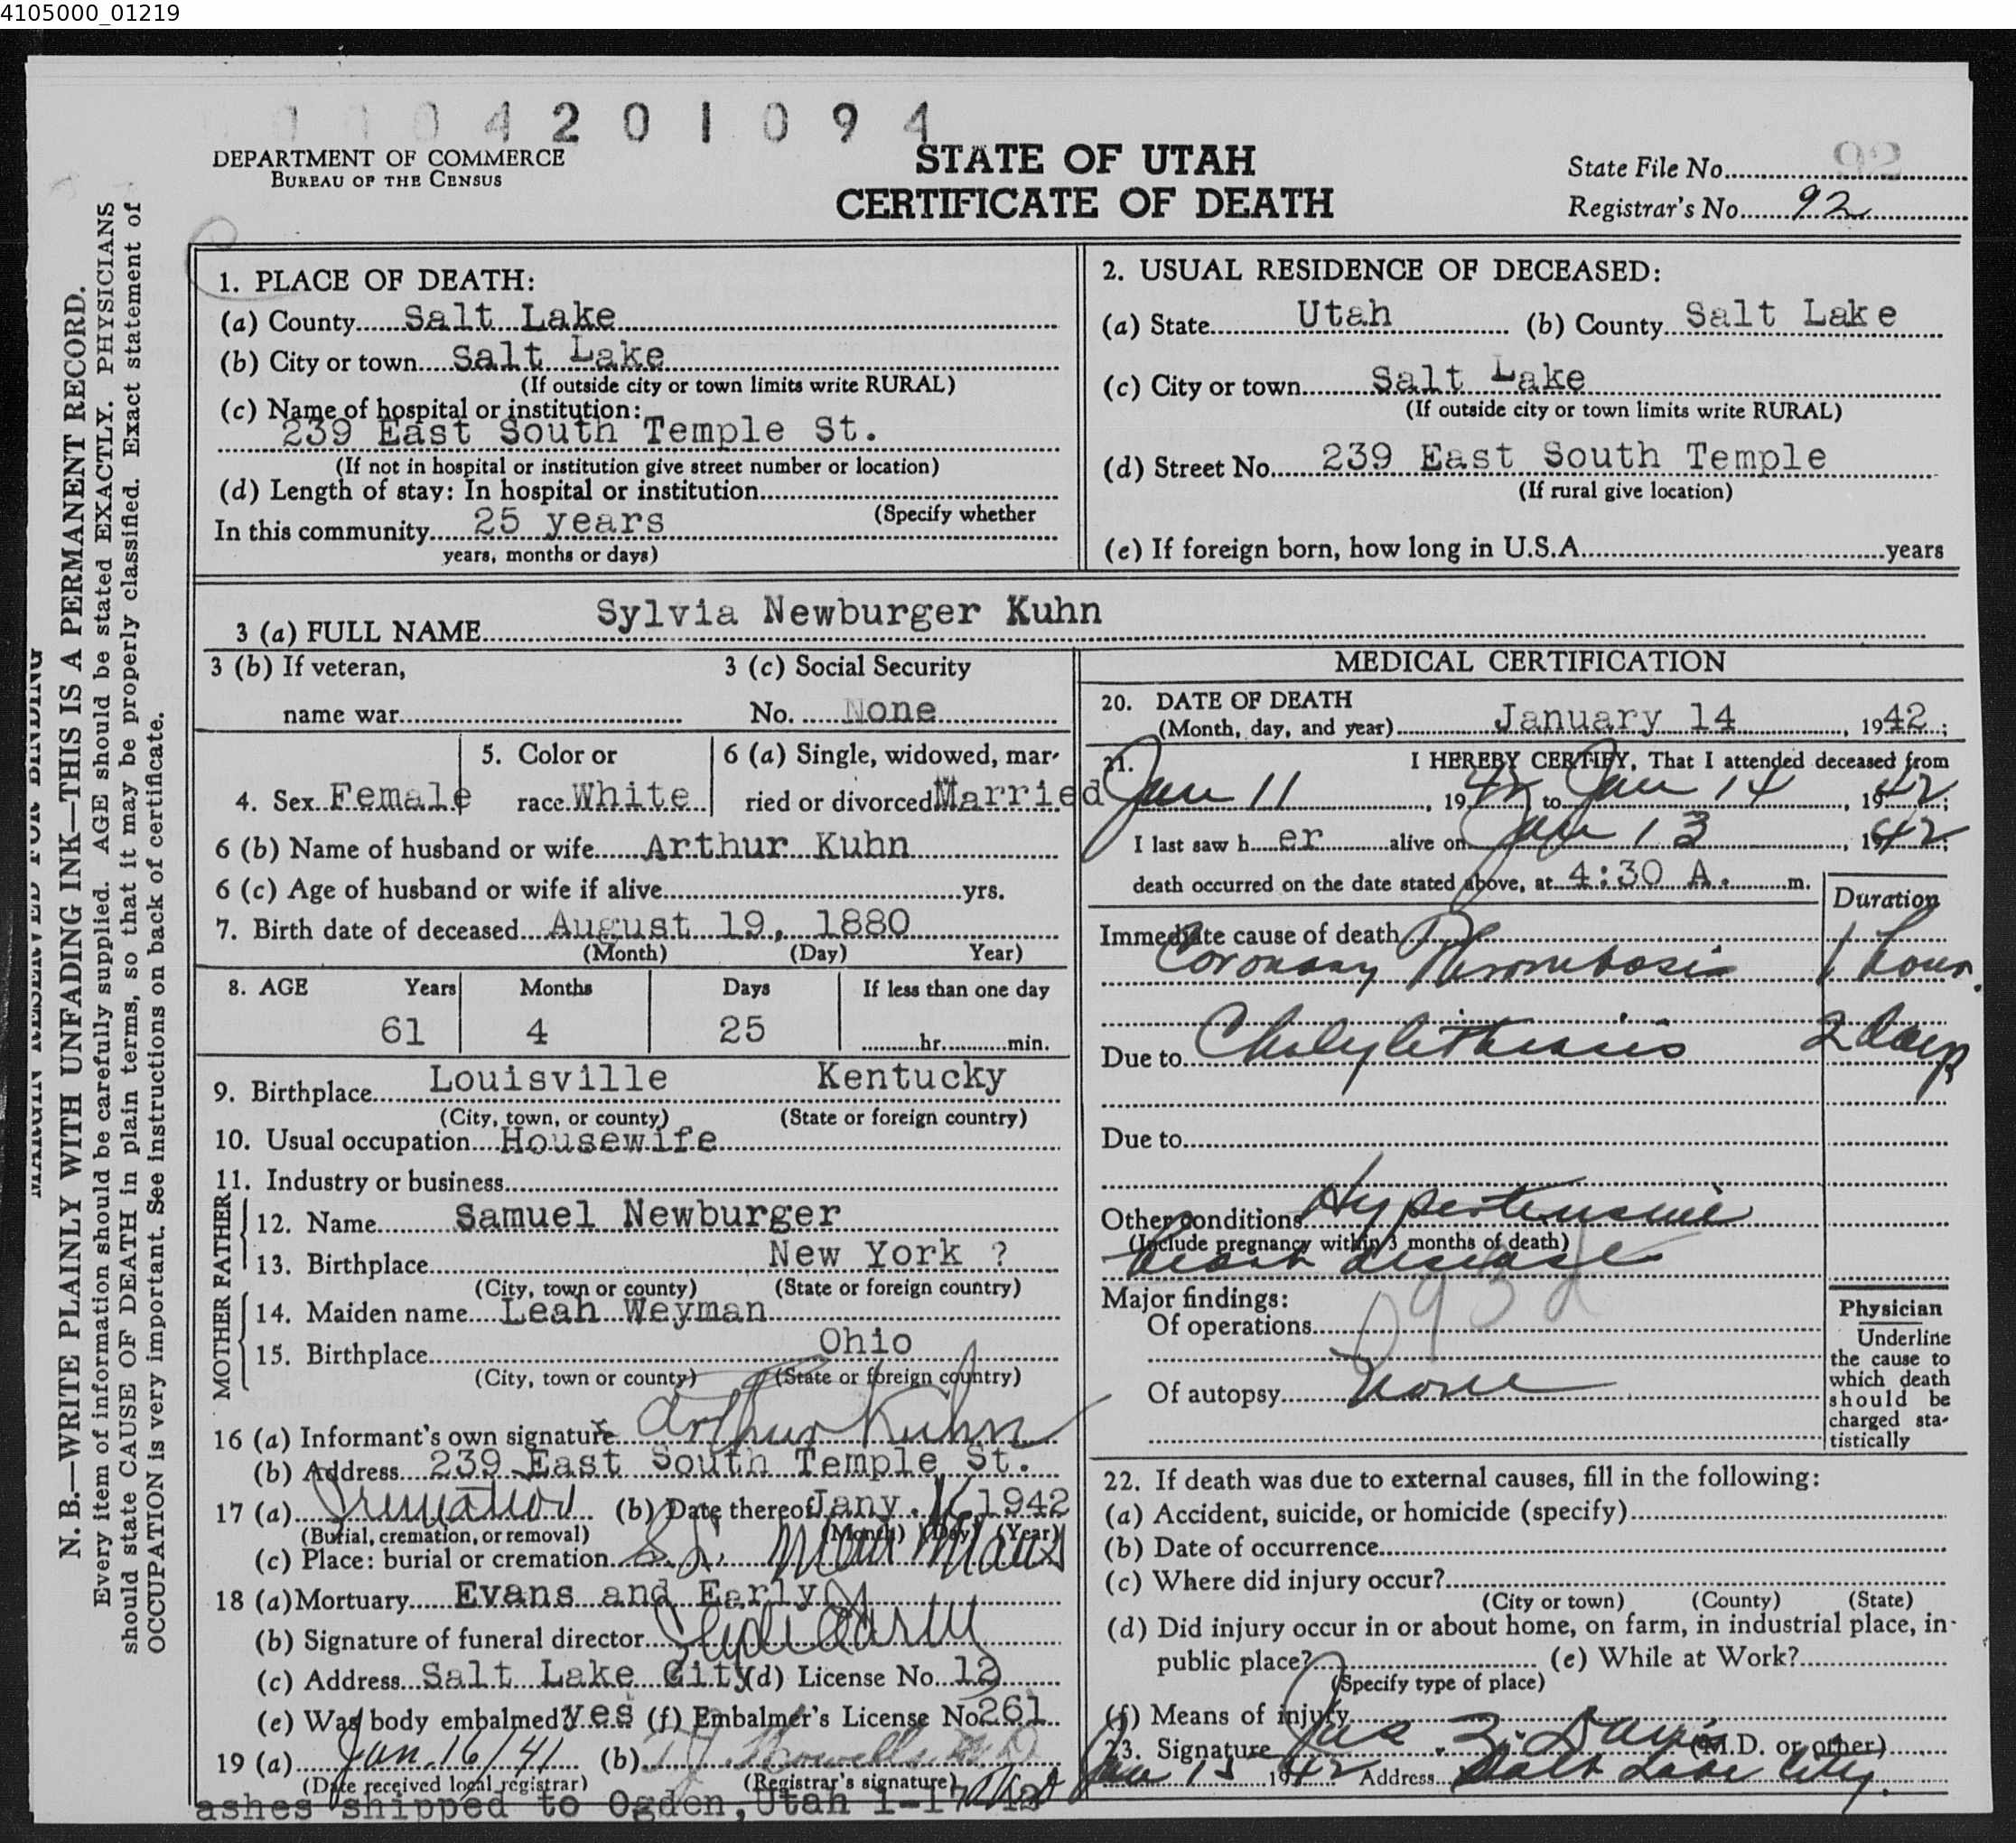 4105000_01219
0004201094
DEPARTMENT OF COMMERCE
BUREAU OF THE CENSUS
STATE OF UTAH
CERTIFICATE OF DEATH
State File No. 92
Registrar's No. 92
MARGIN RESERVED FOR BINDING
N. B.—WRITE PLAINLY WITH UNFADING INK—THIS IS A PERMANENT RECORD.
Every item of information should be carefully supplied. AGE should be stated EXACTLY. PHYSICIANS
should state CAUSE OF DEATH in plain terms, so that it may be properly classified. Exact statement of
OCCUPATION is very important. See instructions on back of certificate.
1. PLACE OF DEATH:
(a) County Salt Lake
(b) City or town Salt Lake
(If outside city or town limits write RURAL)
(c) Name of hospital or institution:
239 East South Temple St.
(If not in hospital or institution give street number or location)
(d) Length of stay: In hospital or institution
(Specify whether
In this community 25 years
years, months or days)
2. USUAL RESIDENCE OF DECEASED:
(a) State Utah (b) County Salt Lake
(c) City or town Salt Lake
(If outside city or town limits write RURAL)
(d) Street No. 239 East South Temple
(If rural give location)
(e) If foreign born, how long in U.S.A. years
3 (a) FULL NAME Sylvia Newburger Kuhn
3 (b) If veteran,
name war
3 (c) Social Security
No. None
4. Sex Female
5. Color or
race White
6 (a) Single, widowed, mar-
ried or divorced Married
6 (b) Name of husband or wife Arthur Kuhn
6 (c) Age of husband or wife if alive yrs.
7. Birth date of deceased August 19, 1880
(Month) (Day) Year)
8. AGE Years Months Days If less than one day
61 4 25 hr. min.
9. Birthplace Louisville Kentucky
(City, town, or county) (State or foreign country)
10. Usual occupation Housewife
11. Industry or business
FATHER
12. Name Samuel Newburger
13. Birthplace New York ?
(City, town or county) (State or foreign country)
MOTHER
14. Maiden name Leah Weyman
15. Birthplace Ohio
(City, town or county) (State or foreign country)
16 (a) Informant's own signature x Arthur Kuhn
(b) Address 239 East South Temple St.
17 (a) Cremation (b) Date thereof Jany. 16 1942
(Burial, cremation, or removal) (Month) (Day) (Year)
(c) Place: burial or cremation
18 (a) Mortuary Evans and Early
(b) Signature of funeral director
(c) Address Salt Lake City (d) License No. 12
(e) Was body embalmed? yes (f) Embalmer's License No. 261
19 (a) Jan. 16/41 (b)
(Date received local registrar) (Registrar's signature)
ashes shipped to Ogden, Utah 1-17
MEDICAL CERTIFICATION
20. DATE OF DEATH
(Month, day, and year) January 14, 1942;
21. I HEREBY CERTIFY, That I attended deceased from
Jan 11, 1942 to Jan 14, 1942;
I last saw her alive on Jan 13, 1942;
death occurred on the date stated above, at 4:30 A. m.
Duration
Immediate cause of death
Coronary Thrombosis 1 hour.
Due to Cholylithiasis 2 days
Due to
Other conditions Hypertensive
(Include pregnancy within 3 months of death)
heart disease
93d
Major findings:
Of operations
Of autopsy None
Physician
Underline
the cause to
which death
should be
charged sta-
tistically
22. If death was due to external causes, fill in the following:
(a) Accident, suicide, or homicide (specify)
(b) Date of occurrence
(c) Where did injury occur?
(City or town) (County) (State)
(d) Did injury occur in or about home, on farm, in industrial place, in-
public place? (e) While at Work?
(Specify type of place)
(f) Means of injury
23. Signature Jas Z. Davis (M.D. or other)
Jan 15 1942 Address Salt Lake City.